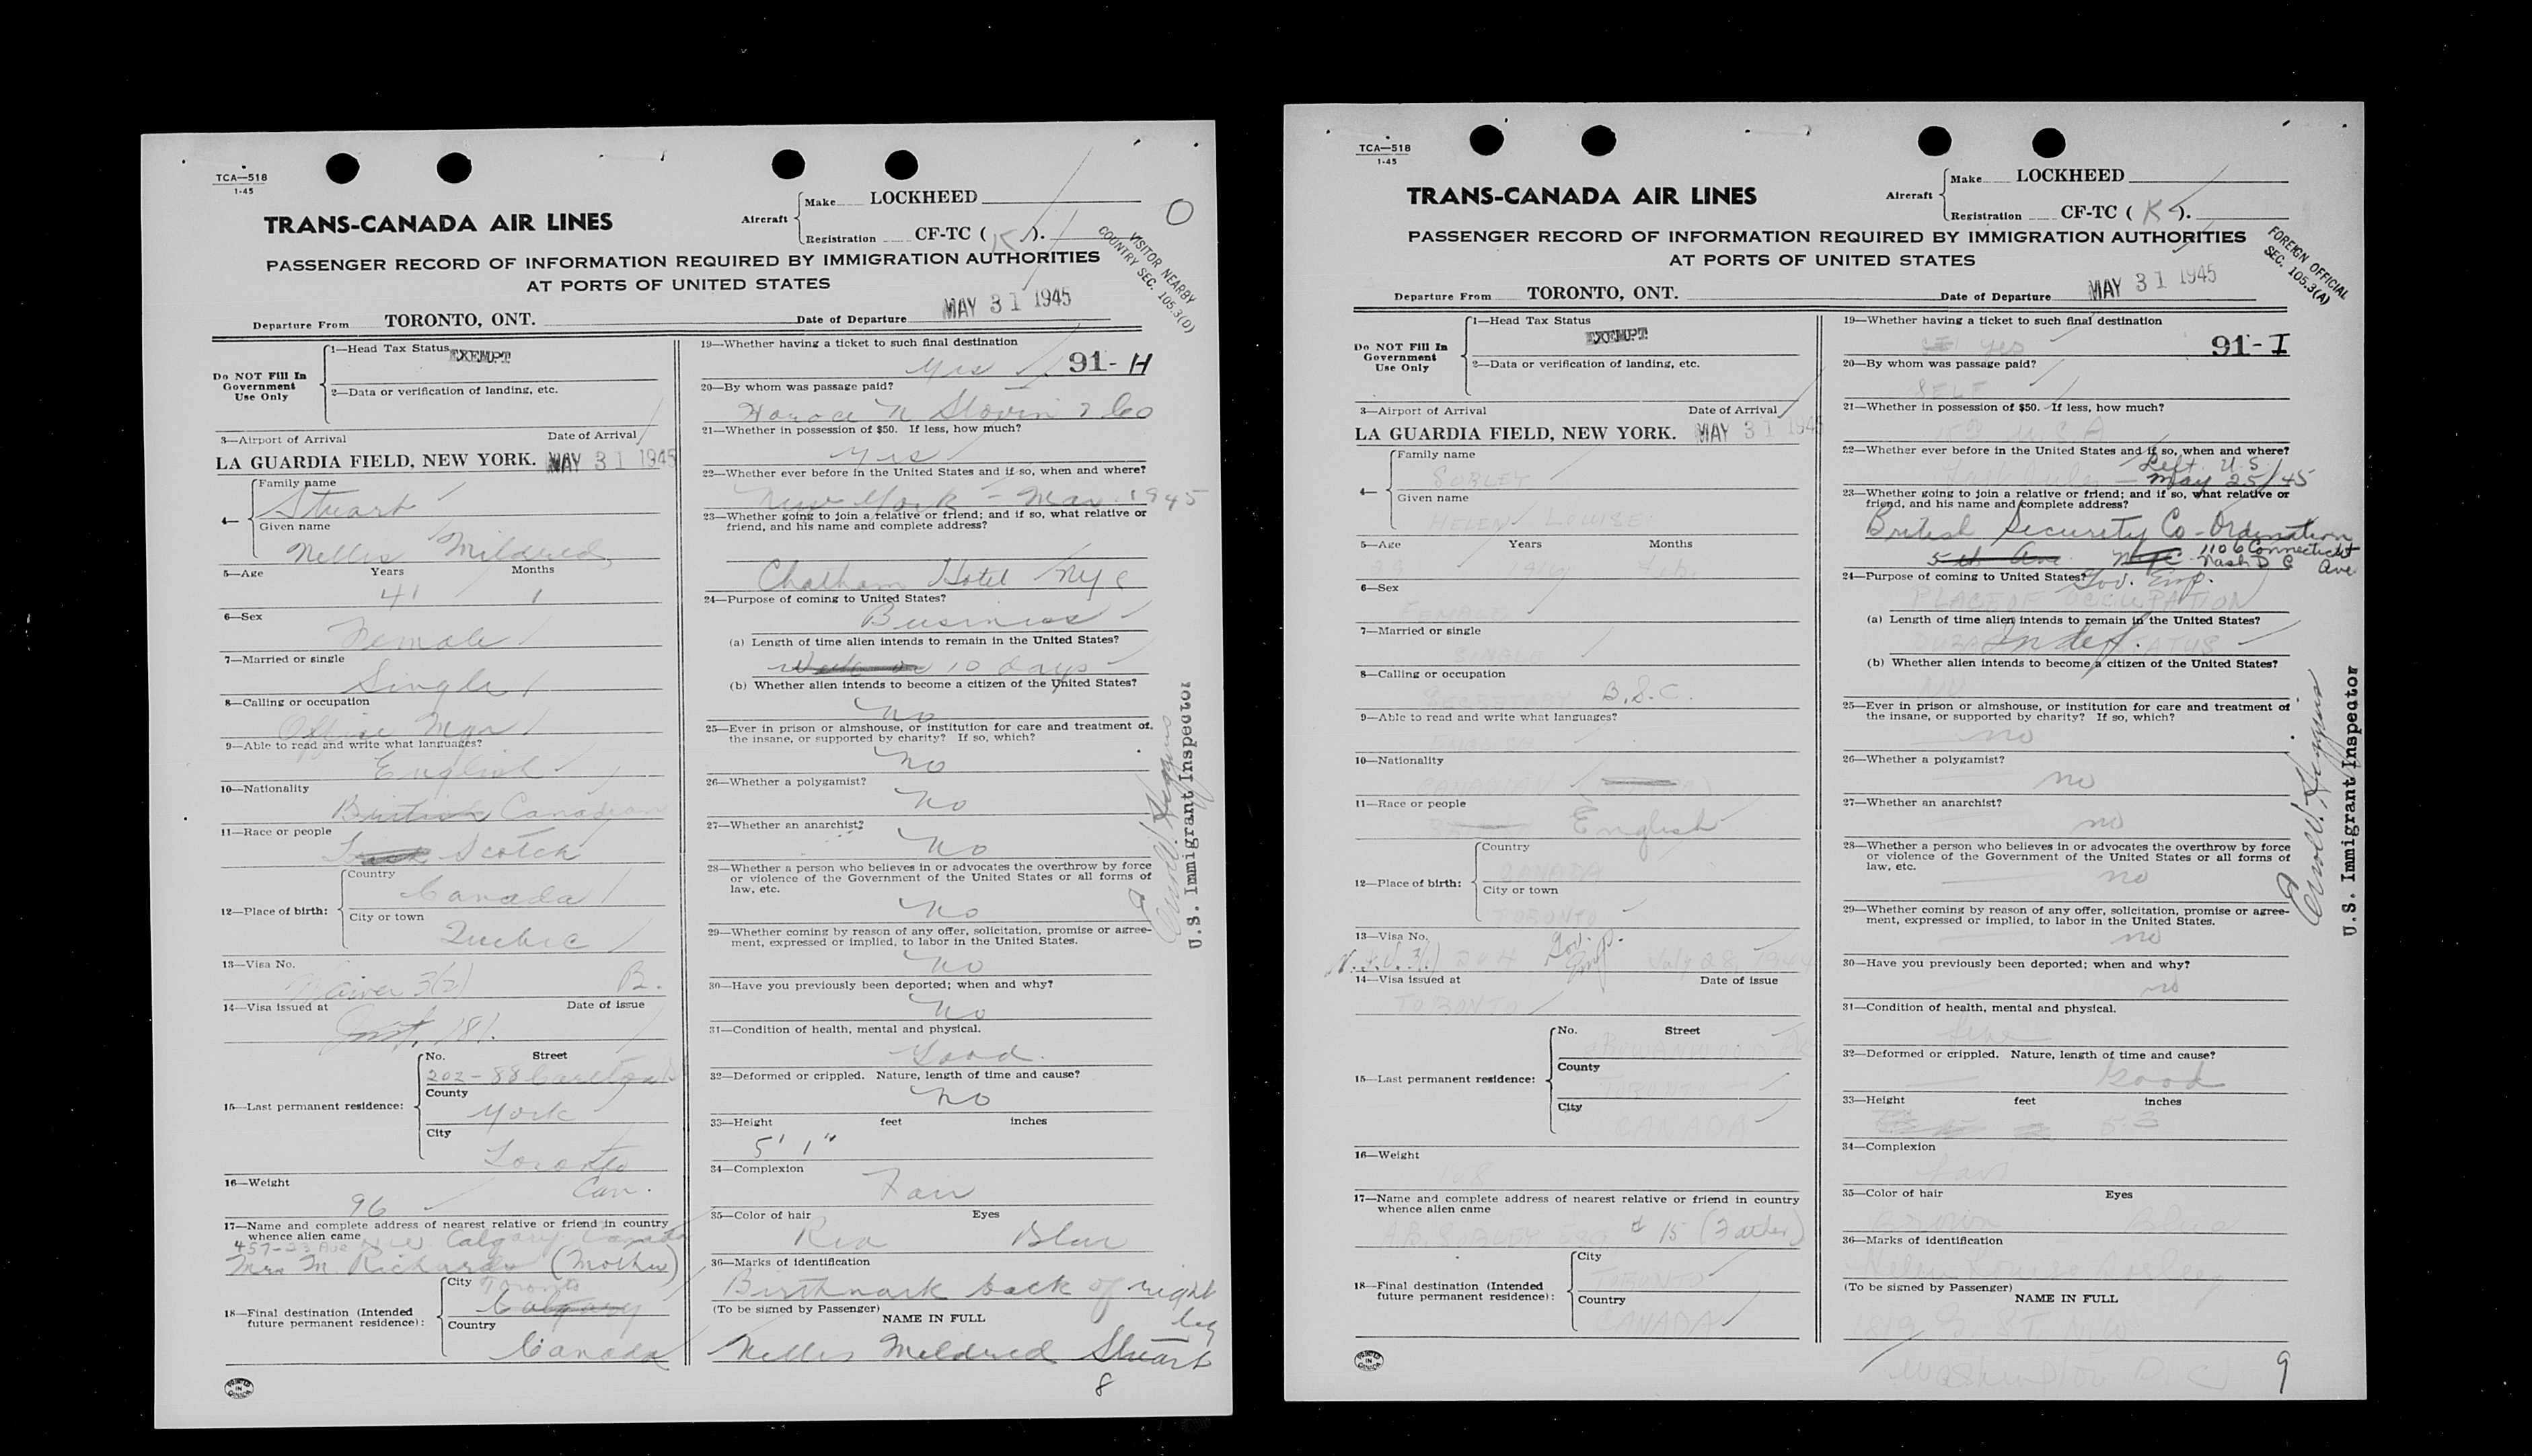 TCA—518
1-45
TRANS-CANADA AIR LINES
Aircraft
Make LOCKHEED
Registration CF-TC ( K ).
O
VISITOR NEARBY
COUNTRY SEC. 105.3(D)
PASSENGER RECORD OF INFORMATION REQUIRED BY IMMIGRATION AUTHORITIES
AT PORTS OF UNITED STATES
Departure From TORONTO, ONT. Date of Departure MAY 31 1945
Do NOT Fill In
Government
Use Only
1—Head Tax Status EXEMPT
2—Data or verification of landing, etc.
3—Airport of Arrival Date of Arrival
LA GUARDIA FIELD, NEW YORK. MAY 31 1945
4—
Family name
Stuart
Given name
Nellis Mildred
5—Age Years Months
41 1
6—Sex
Female
7—Married or single
Single
8—Calling or occupation
Office Mgr
9—Able to read and write what languages?
English
10—Nationality
British Canadian
11—Race or people
Scotch
12—Place of birth:
Country
Canada
City or town
Quebec
13—Visa No.
Waiver 3(2) B.
14—Visa issued at Date of issue
181.
15—Last permanent residence:
No. Street
202-88
County
York
City
Toronto
Can.
16—Weight
96
17—Name and complete address of nearest relative or friend in country
whence alien came
457-23 Ave N W Calgary Canada
Mrs M. Richards (Mother)
18—Final destination (Intended
future permanent residence):
City Toronto
Calgary
Country
Canada
19—Whether having a ticket to such final destination
Yes 91-H
20—By whom was passage paid?
Horace N Stovin & Co
21—Whether in possession of $50. If less, how much?
Yes
22—Whether ever before in the United States and if so, when and where?
New York - Mar. 1945
23—Whether going to join a relative or friend; and if so, what relative or
friend, and his name and complete address?
Chatham Hotel NYC
24—Purpose of coming to United States?
Business
(a) Length of time alien intends to remain in the United States?
10 days
(b) Whether alien intends to become a citizen of the United States?
No
25—Ever in prison or almshouse, or institution for care and treatment of
the insane, or supported by charity? If so, which?
No
26—Whether a polygamist?
No
27—Whether an anarchist?
No
28—Whether a person who believes in or advocates the overthrow by force
or violence of the Government of the United States or all forms of
law, etc.
No
29—Whether coming by reason of any offer, solicitation, promise or agree-
ment, expressed or implied, to labor in the United States.
No
30—Have you previously been deported; when and why?
No
31—Condition of health, mental and physical.
Good.
32—Deformed or crippled. Nature, length of time and cause?
No
33—Height feet inches
5' 1"
34—Complexion
Fair
35—Color of hair Eyes
Red Blue
36—Marks of identification
Birthmark back of right
leg
(To be signed by Passenger)
NAME IN FULL
Nellis Mildred Stuart
8
U.S. Immigrant Inspector
PRINTED IN CANADA
TCA—518
1-45
TRANS-CANADA AIR LINES
Aircraft
Make LOCKHEED
Registration CF-TC ( K ).
FOREIGN OFFICIAL
SEC. 105.3(A)
PASSENGER RECORD OF INFORMATION REQUIRED BY IMMIGRATION AUTHORITIES
AT PORTS OF UNITED STATES
Departure From TORONTO, ONT. Date of Departure MAY 31 1945
Do NOT Fill In
Government
Use Only
1—Head Tax Status
EXEMPT
2—Data or verification of landing, etc.
3—Airport of Arrival Date of Arrival
LA GUARDIA FIELD, NEW YORK. MAY 31 1945
4—
Family name
Given name
HELEN LOUISE
5—Age Years Months
6—Sex
FEMALE
7—Married or single
SINGLE
8—Calling or occupation
SECRETARY B.S.C.
9—Able to read and write what languages?
10—Nationality
CANADIAN
11—Race or people
English
12—Place of birth:
Country
CANADA
City or town
TORONTO
13—Visa No.
Gov. Emp. July 28, 1944
14—Visa issued at Date of issue
TORONTO
15—Last permanent residence:
No. Street
County
TORONTO
City
CANADA
16—Weight
17—Name and complete address of nearest relative or friend in country
whence alien came
# 15 (Father)
18—Final destination (Intended
future permanent residence):
City
TORONTO
Country
CANADA
19—Whether having a ticket to such final destination
yes 91-I
20—By whom was passage paid?
SELF
21—Whether in possession of $50. If less, how much?
22—Whether ever before in the United States and if so, when and where?
Left U.S.
May 25/45
23—Whether going to join a relative or friend; and if so, what relative or
friend, and his name and complete address?
British Security Co-Ordination
5th Ave NYC 1106 Connecticut
Wash D C Ave
24—Purpose of coming to United States? Gov. Emp.
PLACE OF OCCUPATION
(a) Length of time alien intends to remain in the United States?
Indef.
(b) Whether alien intends to become a citizen of the United States?
NO
25—Ever in prison or almshouse, or institution for care and treatment of
the insane, or supported by charity? If so, which?
no
26—Whether a polygamist?
no
27—Whether an anarchist?
no
28—Whether a person who believes in or advocates the overthrow by force
or violence of the Government of the United States or all forms of
law, etc.
no
29—Whether coming by reason of any offer, solicitation, promise or agree-
ment, expressed or implied, to labor in the United States.
no
30—Have you previously been deported; when and why?
no
31—Condition of health, mental and physical.
fine
32—Deformed or crippled. Nature, length of time and cause?
Good
33—Height feet inches
5 3
34—Complexion
fair
35—Color of hair Eyes
Brown Blue
36—Marks of identification
(To be signed by Passenger)
NAME IN FULL
1819 G. ST. N.W.
Washington D.C.
9
U.S. Immigrant Inspector
PRINTED IN CANADA